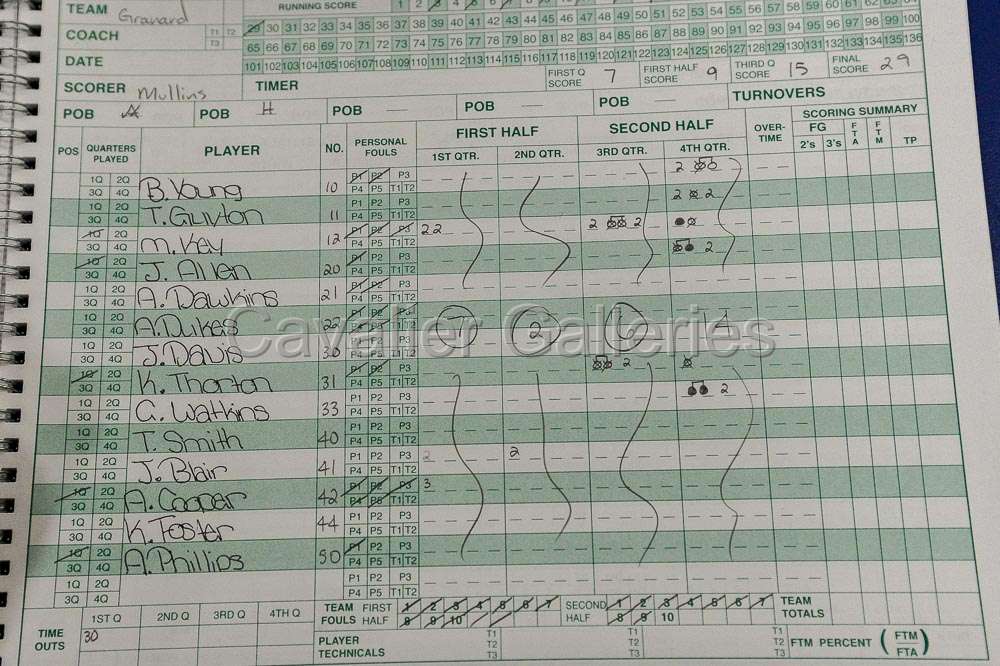 TEAM Granard RUNNING SCORE
COACH T1 T2 T3 29 30 31 32 33 34 35 36 37 38 39 40 41 42 43 44 45 46 47 48 49 50 51 52 53 54 55 56 57 58 59 60 61 62 63 64
65 66 67 68 69 70 71 72 73 74 75 76 77 78 79 80 81 82 83 84 85 86 87 88 89 90 91 92 93 94 95 96 97 98 99 100
DATE 101 102 103 104 105 106 107 108 109 110 111 112 113 114 115 116 117 118 119 120 121 122 123 124 125 126 127 128 129 130 131 132 133 134 135 136
SCORER Mullins TIMER FIRST Q SCORE 7 FIRST HALF SCORE 9 THIRD Q SCORE 15 FINAL SCORE 29
POB A POB H POB — POB — POB — TURNOVERS
POS QUARTERS PLAYED PLAYER NO. PERSONAL FOULS FIRST HALF SECOND HALF OVER-TIME SCORING SUMMARY
1ST QTR. 2ND QTR. 3RD QTR. 4TH QTR. FG 2's 3's FTA FTM TP
1Q 2Q 3Q 4Q B. Young 10 P1 P2 P3 P4 P5 T1 T2 2
1Q 2Q 3Q 4Q T. Guyton 11 P1 P2 P3 P4 P5 T1 T2 2 2
1Q 2Q 3Q 4Q M. Key 12 P1 P2 P3 P4 P5 T1 T2 22 2 2
1Q 2Q 3Q 4Q J. Allen 20 P1 P2 P3 P4 P5 T1 T2 2
1Q 2Q 3Q 4Q A. Dawkins 21 P1 P2 P3 P4 P5 T1 T2
1Q 2Q 3Q 4Q A. Dukes 22 P1 P2 P3 P4 P5 T1 T2 7 2 6 14
1Q 2Q 3Q 4Q J. Davis 30 P1 P2 P3 P4 P5 T1 T2
Cavalier Galleries
1Q 2Q 3Q 4Q K. Thorton 31 P1 P2 P3 P4 P5 T1 T2 2
1Q 2Q 3Q 4Q G. Watkins 33 P1 P2 P3 P4 P5 T1 T2 2
1Q 2Q 3Q 4Q T. Smith 40 P1 P2 P3 P4 P5 T1 T2
1Q 2Q 3Q 4Q J. Blair 41 P1 P2 P3 P4 P5 T1 T2 2 2
1Q 2Q 3Q 4Q A. Cooper 42 P1 P2 P3 P4 P5 T1 T2 3
1Q 2Q 3Q 4Q K. Foster 44 P1 P2 P3 P4 P5 T1 T2
1Q 2Q 3Q 4Q A. Phillips 50 P1 P2 P3 P4 P5 T1 T2
1Q 2Q 3Q 4Q P1 P2 P3 P4 P5 T1 T2
TIME OUTS 1ST Q 2ND Q 3RD Q 4TH Q TEAM FOULS FIRST HALF 1 2 3 4 5 6 7 8 9 10 SECOND HALF 1 2 3 4 5 6 7 8 9 10 TEAM TOTALS
30 PLAYER TECHNICALS T1 T2 T3 T1 T2 T3 T1 T2 T3 FTM PERCENT (FTM/FTA)